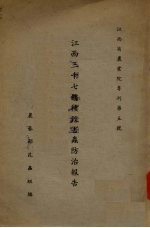 江西省農業院專刊第五號
江西三書七縣棱蝗害蟲防治報告
農藝部昆蟲組編